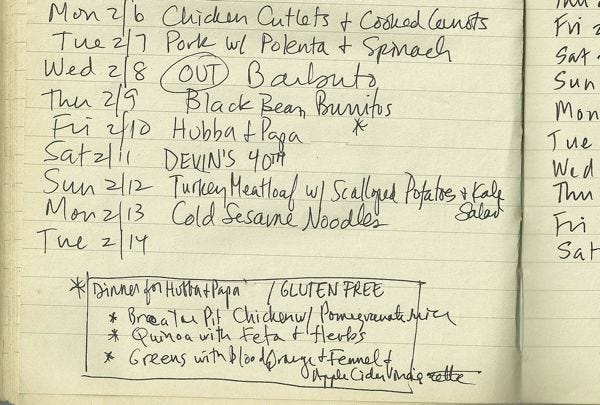 Mon 2/6 Chicken Cutlets + Cooked Carrots
Tue 2/7 Pork w/ Polenta + Spinach
Wed 2/8 OUT Barbuto
Thu 2/9 Black Bean Burritos
Fri 2/10 Hubba + Papa *
Sat 2/11 DEVIN'S 40TH
Sun 2/12 Turkey Meatloaf w/ Scalloped Potatoes + Kale
Salad
Mon 2/13 Cold Sesame Noodles
Tue 2/14
* Dinner for Hubba + Papa / GLUTEN FREE
* Chicken w/ Pomegranate
* Quinoa with Feta + Herbs
* Greens with Blood Orange + Fennel +
Apple Cider
Fri
Sat
Sun
Mon
Tue
Wed
Thu
Fri
Sat